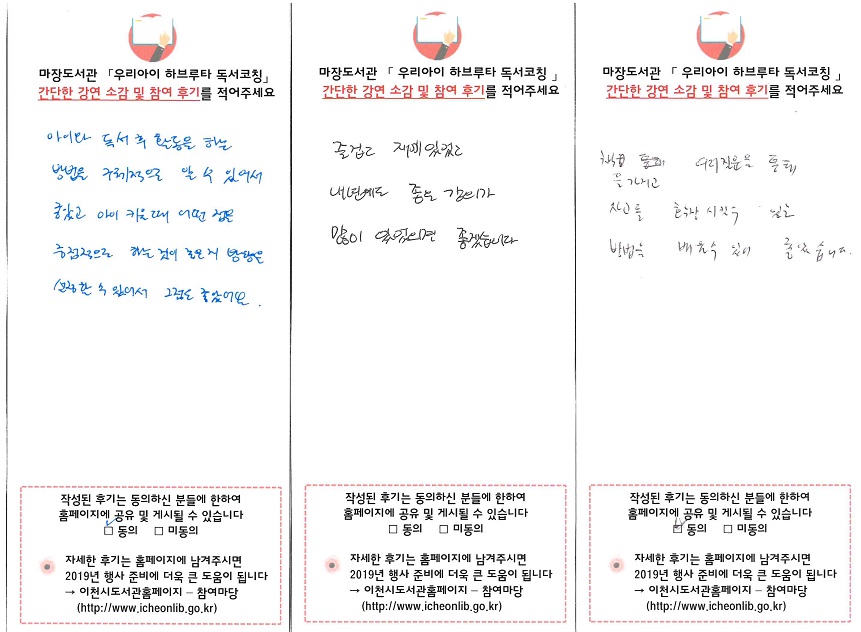 마장도서관 「우리아이 하브루타 독서코칭」
간단한 강연 소감 및 참여 후기를 적어주세요
아이와 독서 후 활동을 하는
방법을 구체적으로 알 수 있어서
좋았고 아이 키울때 어떤 점을
중점적으로 하는 것이 좋은지 방향을
설정할 수 있어서 그점도 좋았어요.
작성된 후기는 동의하신 분들에 한하여
홈페이지에 공유 및 게시될 수 있습니다
□ 동의 □ 미동의
자세한 후기는 홈페이지에 남겨주시면
2019년 행사 준비에 더욱 큰 도움이 됩니다
→ 이천시도서관홈페이지 – 참여마당
(http://www.icheonlib.go.kr)
마장도서관 「 우리아이 하브루타 독서코칭 」
간단한 강연 소감 및 참여 후기를 적어주세요
즐겁고 재미있었고
내년에도 좋은 강의가
많이 있었으면 좋겠습니다
작성된 후기는 동의하신 분들에 한하여
홈페이지에 공유 및 게시될 수 있습니다
□ 동의 □ 미동의
자세한 후기는 홈페이지에 남겨주시면
2019년 행사 준비에 더욱 큰 도움이 됩니다
→ 이천시도서관홈페이지 – 참여마당
(http://www.icheonlib.go.kr)
마장도서관 「 우리아이 하브루타 독서코칭 」
간단한 강연 소감 및 참여 후기를 적어주세요
여러질문을 통해
사고를 확장 시킬수 있는
방법을 배울수 있어 좋았습니다.
작성된 후기는 동의하신 분들에 한하여
홈페이지에 공유 및 게시될 수 있습니다
□ 동의 □ 미동의
자세한 후기는 홈페이지에 남겨주시면
2019년 행사 준비에 더욱 큰 도움이 됩니다
→ 이천시도서관홈페이지 – 참여마당
(http://www.icheonlib.go.kr)